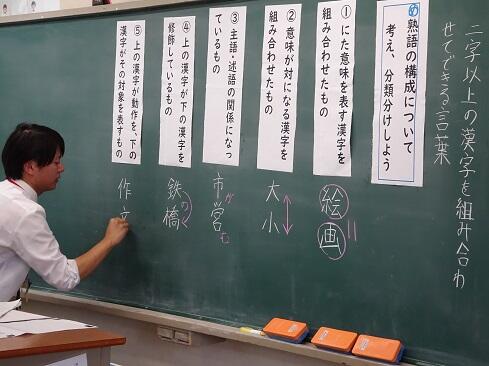 二字以上の漢字を組み合わ
せてできる言葉
め 熟語の構成について
考え、分類分けしよう
① にた意味を表す漢字を
組み合わせたもの
絵画
② 意味が対になる漢字を
組み合わせたもの
大小
③ 主語・述語の関係になっ
ているもの
市が営む
④ 上の漢字が下の漢字を
修飾しているもの
鉄の橋
⑤ 上の漢字が動作を、下の
漢字がその対象を表すもの
作文